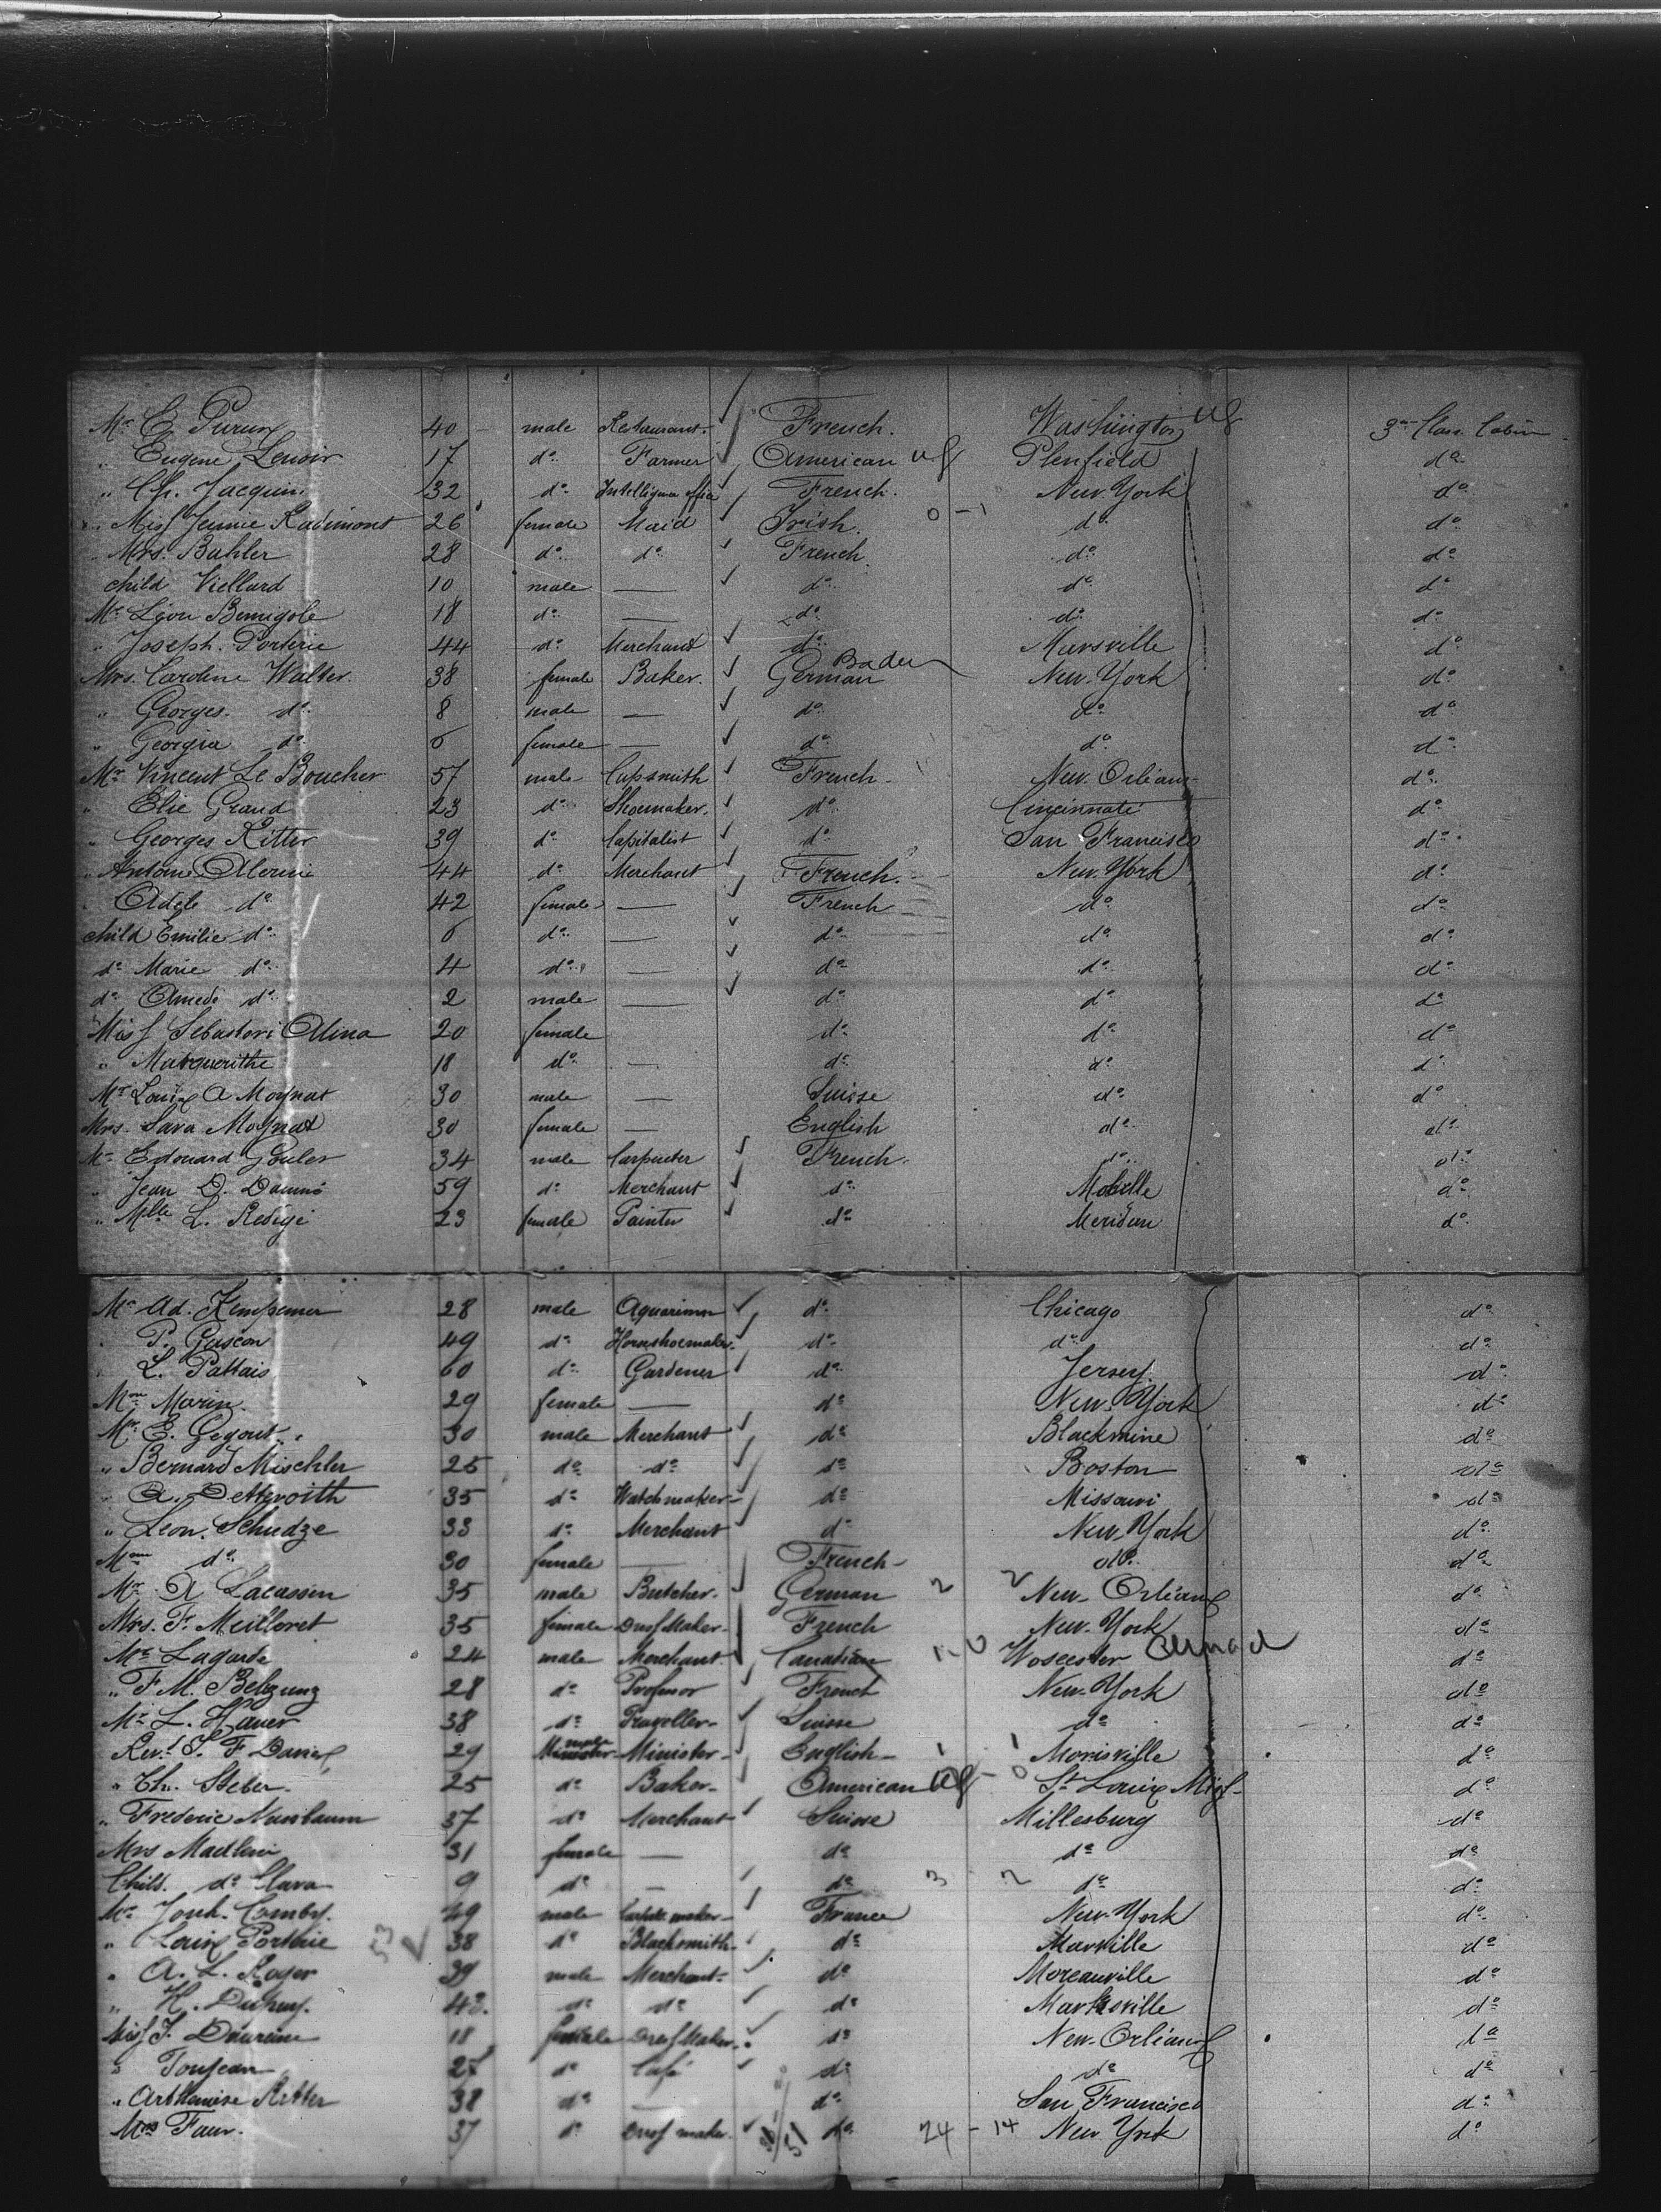 Mr. E. 40 male Restaurant French. Washington 3me Class Cabin
" Eugene Lenoir 17 do Farmer American US Plenfield do
" Ch. Jacquin. 32 do French. New-York do
" Miss Jennie Radimont 26 female Maid Irish. 0-1 do do
Mrs. Bahler 28 do do French do do
child Viellard 10 male — do do do
Mr Léon Bemigole 18 do — do do do
" Joseph. Porterie 44 do Merchant do Marsville do
Mrs. Caroline Walter. 38 female Baker. German Baden New-York do
" Georges. do 8 male — do do do
" Georgia do 6 female — do do do
Mr Vincent Le Boucher 57 male Cupsmith French. New. Orléans do
" Elie Grand 23 do Shoemaker. do Cincinnati do
" Georges Ritter 39 do Capitalist do San Francisco do
" Antoine 44 do Merchant French. New. York do
" Adele do 42 female — French do do
child Emilie do 6 do — do do do
do Marie do 4 do — do do do
do Amedé do 2 male — do do do
Miss Sebastori Alma 20 female do do do
" Marguerithe 18 do — do do do
Mr Louis A Moynat 30 male — Suisse do do
Mrs. Sara Moynat 30 female — English do do
Mr Edouard Gouler 34 male Carpenter French. do do
" Jean D. 59 do Merchant do Mobille do
" Mlle L. 23 female Painter do Meridan do
Mr Ad. Kempener 28 male Aquarimm do Chicago do
" P. Gascon 49 do Horseshoemaker do do do
" L. Pattais 60 do Gardener do Jersey. do
Mme Morin. 29 female — do New-York do
Mr E. Gegout 30 male Merchant do Blackmine do
" Bernard Mischler 25 do do do Boston do
" A. 35 do Watchmaker do Missouri do
" Leon. Schudze 33 do Merchant do New York do
Mme do 30 female — French do do
Mr A Lacassin 35 male Butcher. German 2 2 New-Orléans do
Mrs. F. Meilloret 35 female Dress Maker. French New-York do
Mr Lagarde 24 male Merchant Canadian 1-0 Woscester do
" F M. Belzung 28 do Professor French New-York do
Mr L. Hauer 38 do Traveller Suisse do do
Revd S. F Davies 29 male Minister English 1 1 Morisville do
" Th. Steber. 25 do Baker American US - 0 St Louis Miss do
" Frederic Nussbaum 37 do Merchant Suisse Millesburg do
Mrs Madleni 31 female — do do do
Child. do Clara 9 do — do 3 2 do do
Mr Jonh. 49 male France New-York do
" Louis Porterie 53 38 do Blacksmith do Marville do
" A. L. Roger 39 male Merchant do Moreauville do
" H. Dupuy. 42. do do do Marksville do
Miss J. 18 female Dress Maker. do New-Orléans do
" Toujean 25 do Café do do do
" Arthemise Ritter 38 do — do San Francisco do
Mrs Faur. 37 do Dress maker. 51 do 24-14 New York do